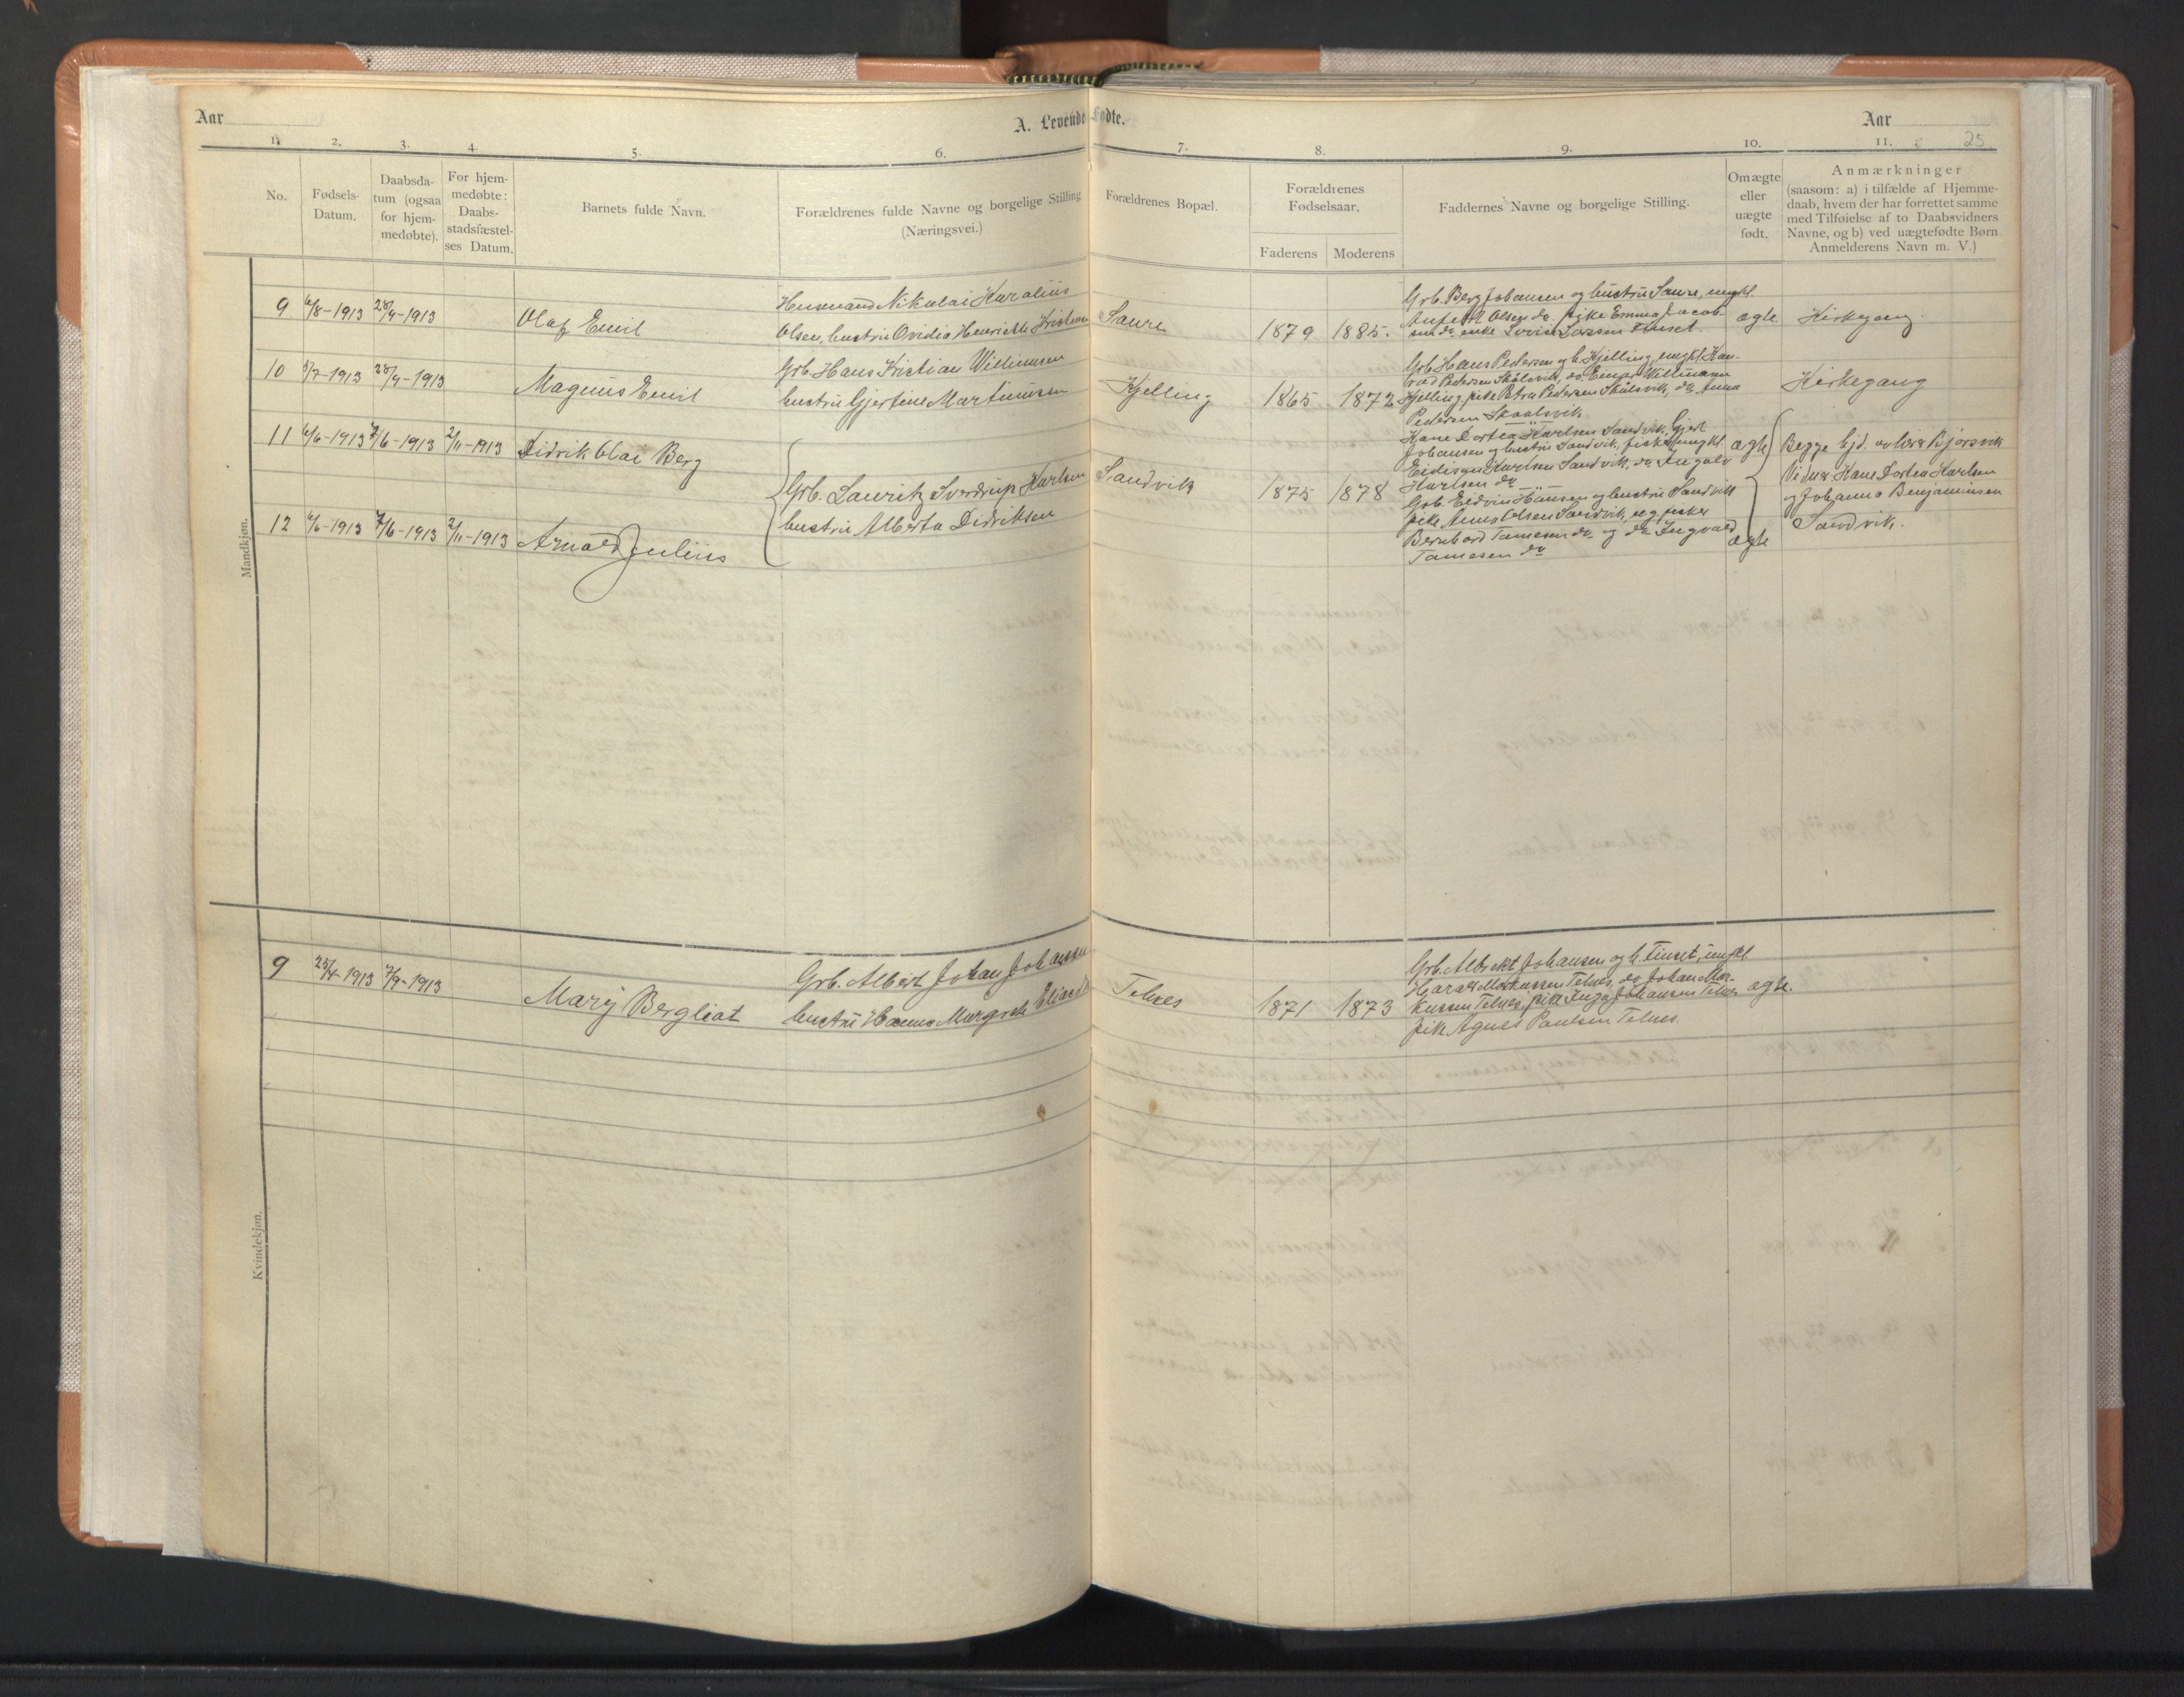 Aar
A. Levende Fødte.
Aar
25
1. 2. 3. 4. 5. 6. 7. 8. 9. 10. 11.
No.
Fødsels-
Datum.
Daabsda-
tum (ogsaa
for hjem-
medøbte).
For hjem-
medøbte:
Daabs-
stadsfæstel-
ses Datum.
Barnets fulde Navn.
Forældrenes fulde Navne og borgelige Stilling
(Næringsvei.)
Forældrenes Bopæl.
Forældrenes
Fødselsaar.
Faderens
Moderens
Faddernes Navne og borgelige Stilling.
Om ægte
eller
uægte
født.
Anmærkninger
(saasom: a) i tilfælde af Hjemme-
daab, hvem der har forrettet samme
med Tilføielse af to Daabsvidners
Navne, og b) ved uægtefødte Børn
Anmelderens Navn m. V.)
Mandkjøn.
9 6/8-1913 28/9-1913
Olaf Emil
Husmand Nikolai Karolius
Olsen, hustru Ovidia Henrikke
Saure
1879 1885.
Grb. Berg Johansen og hustru Saure, ungkl.
Olsen do, pike Emma Jacob-
sen do, enke Lovise Larssen
ægte
Kirkegang.
10 5/7-1913 28/9-1913
Magnus Emil
Grb. Hans Kristian Willumsen
hustru Gjertine Martinussen
Kjelling
1865 1872
Grb Hans Pedersen og h. Kjelling, ungkl Kon-
rad Pedersen Skålsvik, do Einar Willumsen
Kjelling, pike Petra Pedersen Skålsvik, do Anna
Pedersen Skaalsvik
Kirkegang
11 6/6-1913 7/6-1913 2/11-1913
Didrik Olai Berg
Grb. Lauritz Sverdrup Karlsen
hustru Alberta Didriksen
Sandvik
1875 1878
Hane Dortea Karlsen Sandvik, Gjert
Johansen og hustru Sandvik, fisker ungkl
Karlsen Sandvik, do Ingolv
Karlsen do
ægte
Begge hjd. av Bjørsvik
Vidner Hane Dortea Karlsen
og Johanna Benjaminsen
Sandvik.
12 6/6-1913 7/6-1913 2/11-1913
Arnold Julius
Grb. Eidvin Hansen og hustru Sandvik
pike Anna Olsen Sandvik, ug fisker
Bernhard do og do Ingvald
do
ægte
Kvindekjøn.
9 25/4-1913 7/9-1913
Mary Bergliot
Grb. Albert Johan Johansen
hustru Hanna Margrete
Telnes
1871 1873
Grb. Albrekt Johansen og h. Tinset, ungkl
Harald Markussen Telnes, do Johan Mar-
kussen Telnes, pike Inga Johansen Telnes
pike Agnes Paulsen Telnes.
ægte.